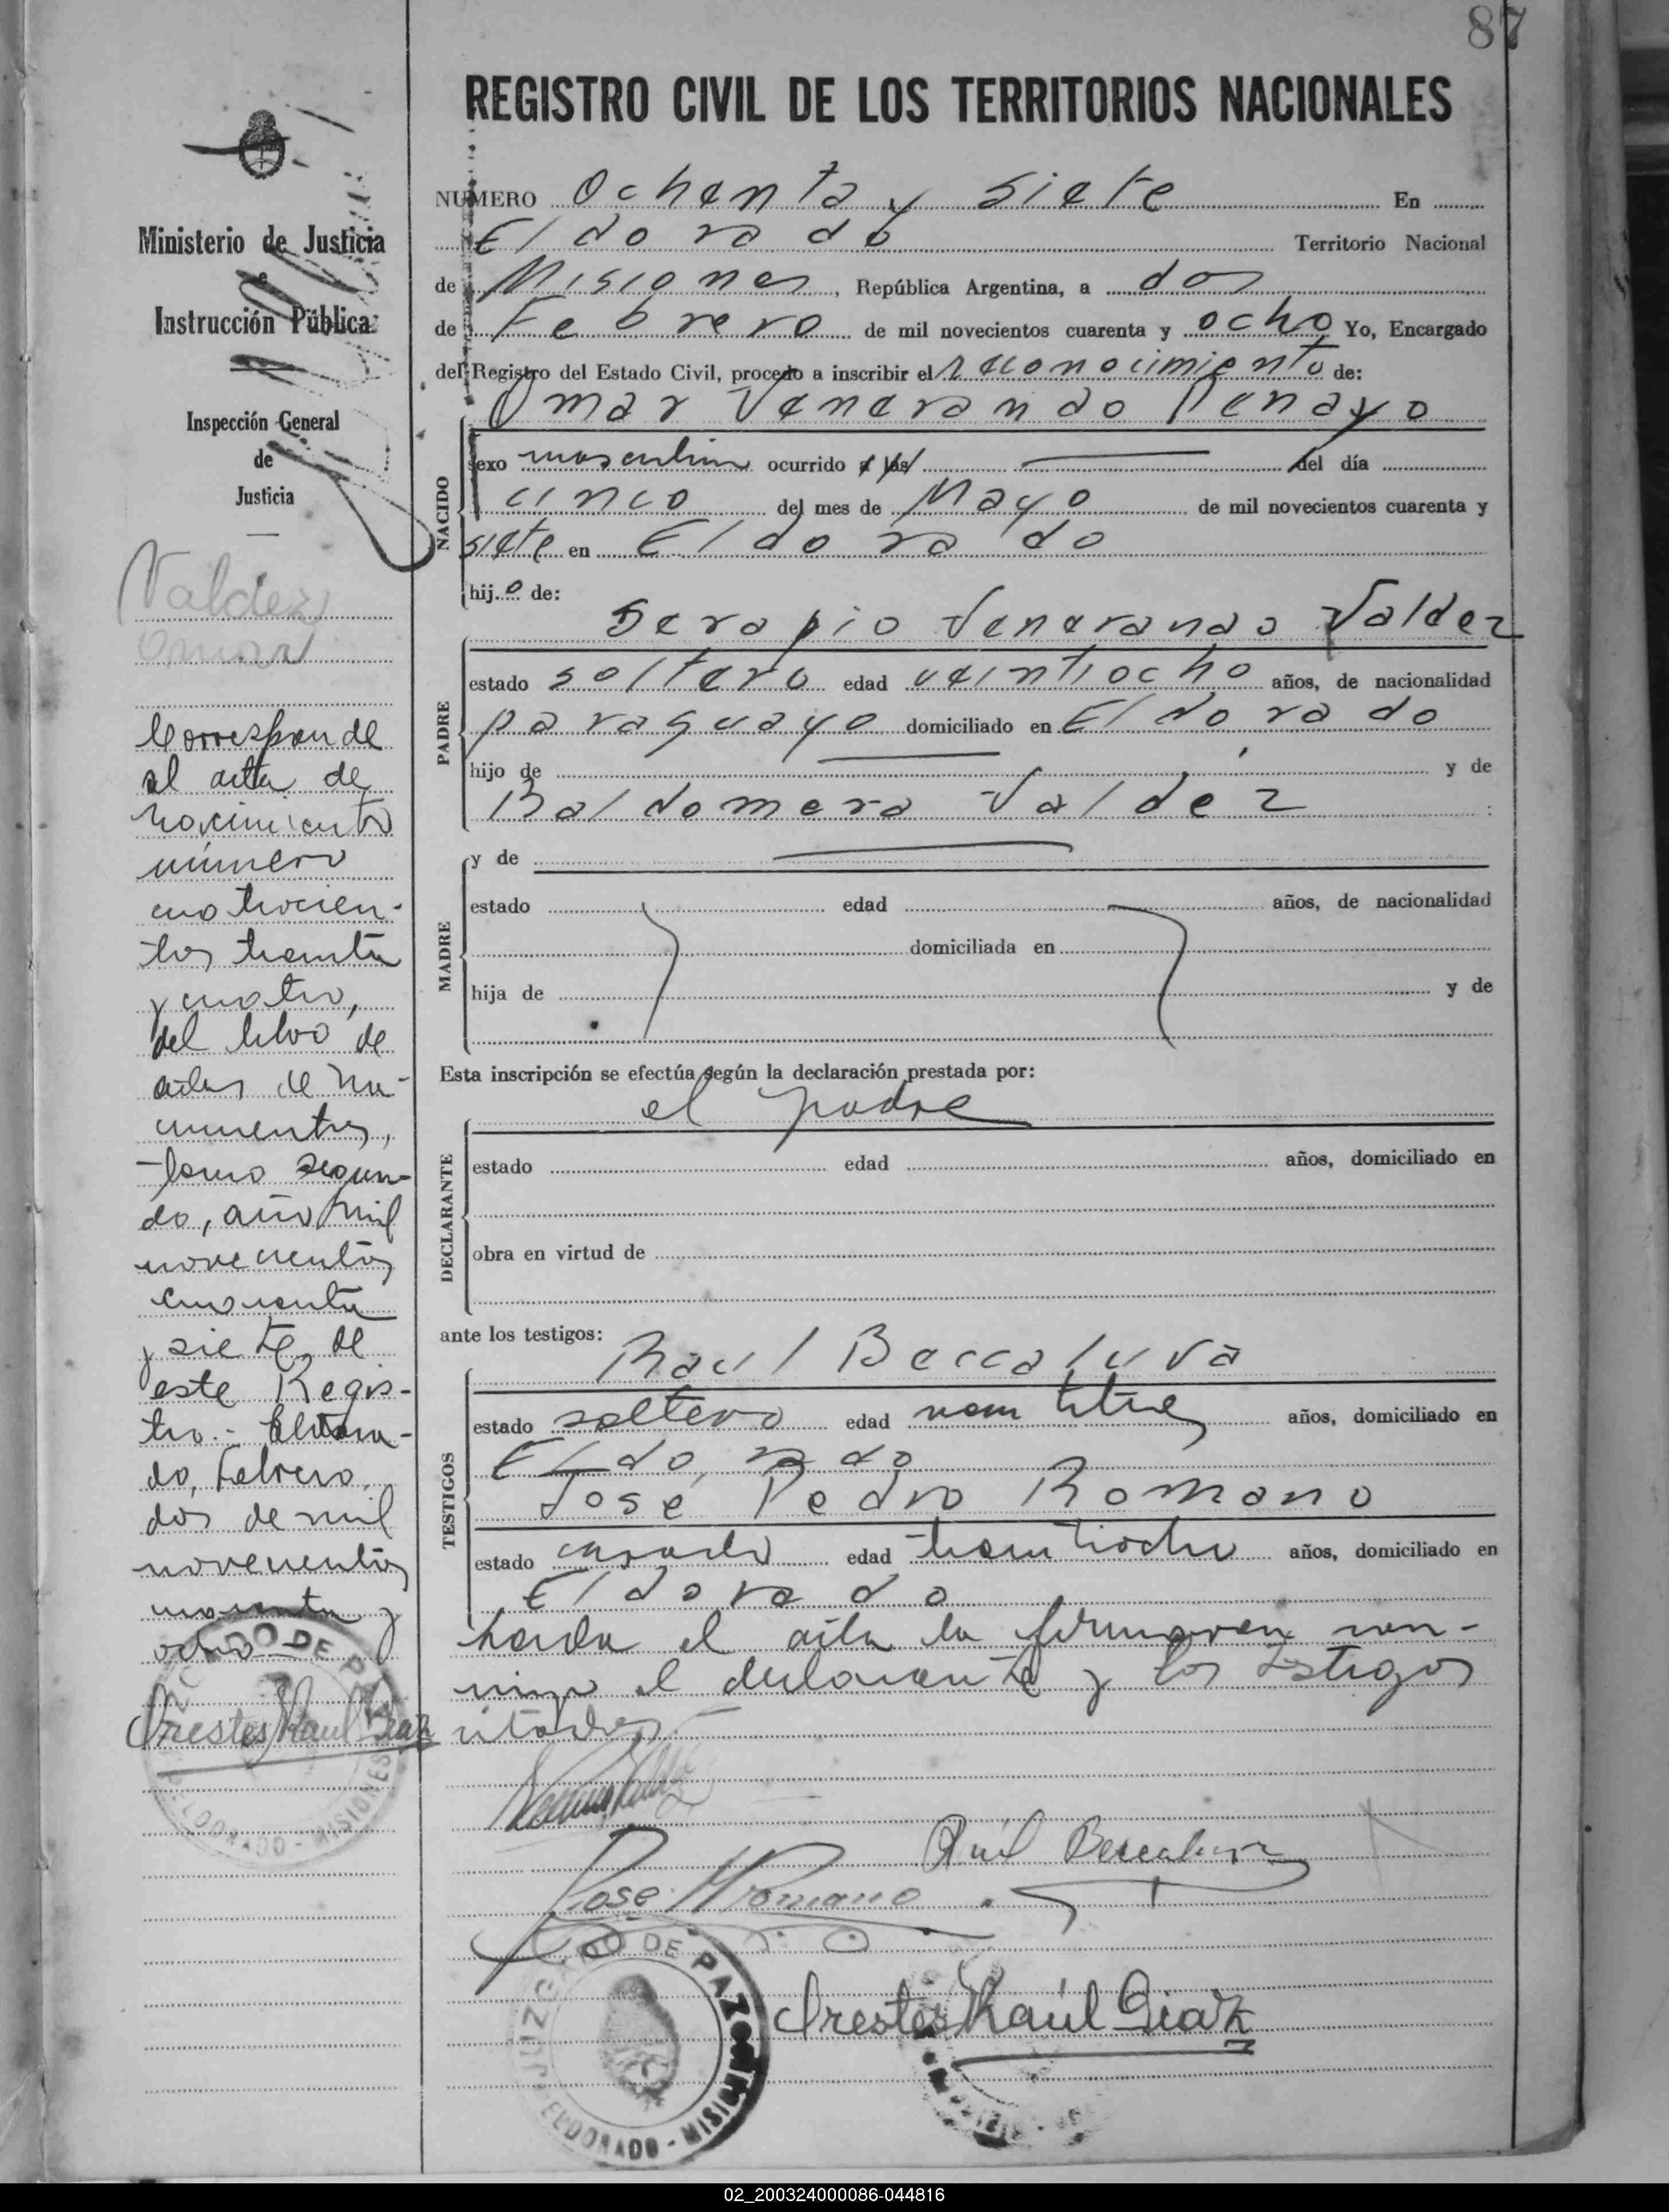 87
REGISTRO CIVIL DE LOS TERRITORIOS NACIONALES
Ministerio de Justicia
e
Instrucción Pública
Inspección General
de
Justicia
Valdez
Omar
Corresponde
al acta de
nacimiento
número
cuatrocien-
tos treinta
y cuatro,
del libro de
actas de na-
cimientos,
tomo segun-
do, año mil
novecientos
cuarenta
y siete, de
este Regis-
tro.- Eldora-
do, Febrero
dos de mil
novecientos
cuarenta y
ocho
Orestes Raul Diaz
NUMERO Ochenta y siete En
Eldorado Territorio Nacional
de Misiones, República Argentina, a dos
de Febrero de mil novecientos cuarenta y ocho Yo, Encargado
del Registro del Estado Civil, procedo a inscribir el reconocimiento de:
Omar Venerando Penayo
NACIDO
sexo masculino ocurrido a las del día
cinco del mes de Mayo de mil novecientos cuarenta y
siete en Eldorado
hijo de:
Serapio Venerando Valdez
PADRE
estado soltero edad veintiocho años, de nacionalidad
paraguayo domiciliado en Eldorado
hijo de y de
Baldomera Valdez
y de
MADRE
estado edad años, de nacionalidad
domiciliada en
hija de y de
Esta inscripción se efectúa según la declaración prestada por:
el padre
DECLARANTE
estado edad años, domiciliado en
obra en virtud de
ante los testigos:
Raul Beccaluva
TESTIGOS
estado soltero edad años, domiciliado en
Eldorado
José Pedro Romano
estado casado edad treintiocho años, domiciliado en
Eldorado
Leida el acta la firmaron con-
migo el declarante y los testigos
citados.-
Raúl Beccaluva
José P Romano
JUZGADO DE PAZ
ELDORADO - MISIONES
Orestes Raúl Diaz
02_200324000086-044816